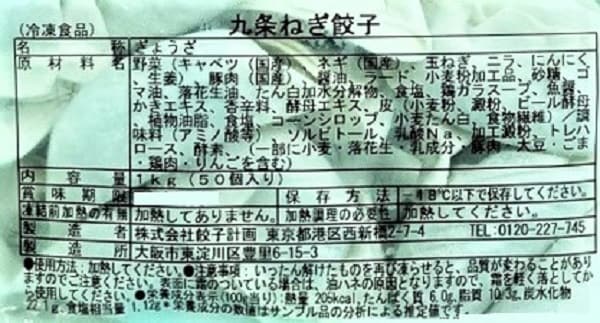 (冷凍食品) 九条ねぎ餃子
名称 ぎょうざ
原材料名 野菜(キャベツ(国産)、ネギ(国産)、玉ねぎ、ニラ、にんにく
、生姜)、豚肉(国産)、醤油、ラード、小麦粉加工品、砂糖、ゴ
マ油、落花生油、たん白加水分解物、食塩、鶏ガラスープ、魚醤、
かきエキス、香辛料、酵母エキス、皮(小麦粉、澱粉、ビール酵母
、植物油脂、食塩、コーンシロップ、小麦たん白、食物繊維)/調
味料(アミノ酸等)、ソルビトール、乳酸Na、加工澱粉、トレハ
ロース、酵素、(一部に小麦・落花生・乳成分・豚肉・大豆・ごま
・鶏肉・りんごを含む)
内容量 1kg(50個入り)
賞味期限 保存方法 -18℃以下で保存してください。
凍結前加熱の有無 加熱してありません。 加熱調理の必要性 加熱してください。
製造者 株式会社餃子計画 東京都港区西新橋2-7-4 TEL:0120-227-745
製造所 大阪市東淀川区豊里6-15-3
●使用方法:加熱してください。●注意事項:いったん解けたものを再び凍らせると、品質が変わることがあり
ますのでご注意ください。表面に霜のついている場合は、油ハネの原因となりますので、霜を軽く落としてか
ら使用してください。●栄養成分表示(100g当り):熱量 205kcal、たんぱく質 6.0g、脂質 10.3g、炭水化物
22.1g、食塩相当量 1.12g ●栄養成分の数値はサンプル品の分析による推定値です。